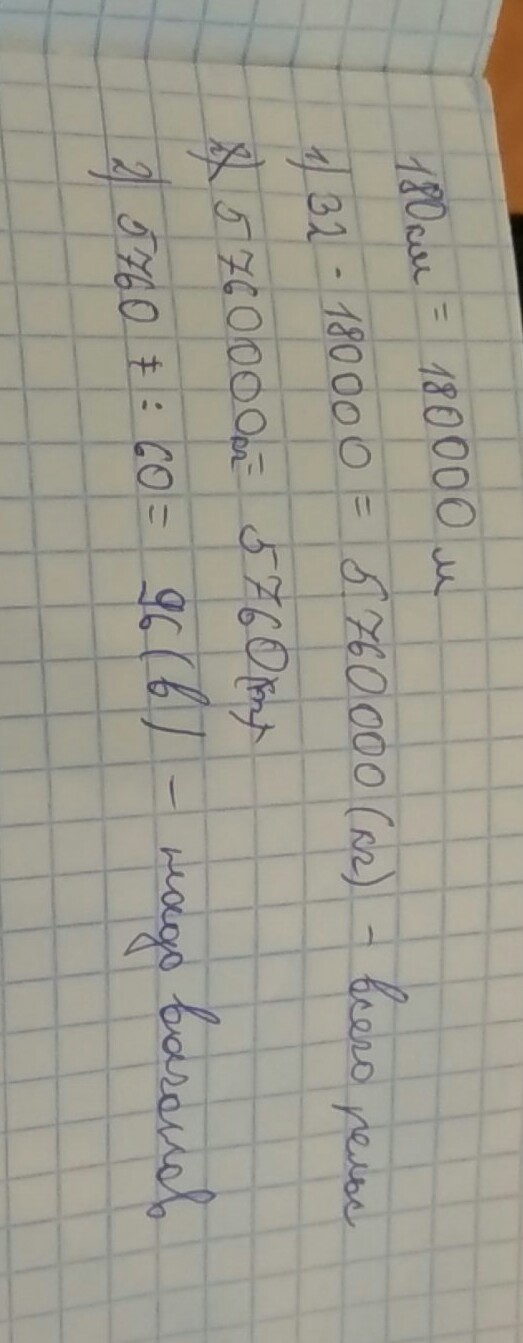 180км = 180000 м
1) 32 · 180000 = 5760000 (кг) - всего рельс
5760000 кг = 5760 т
2) 5760 т : 60 = 96 (в) - надо вагонов